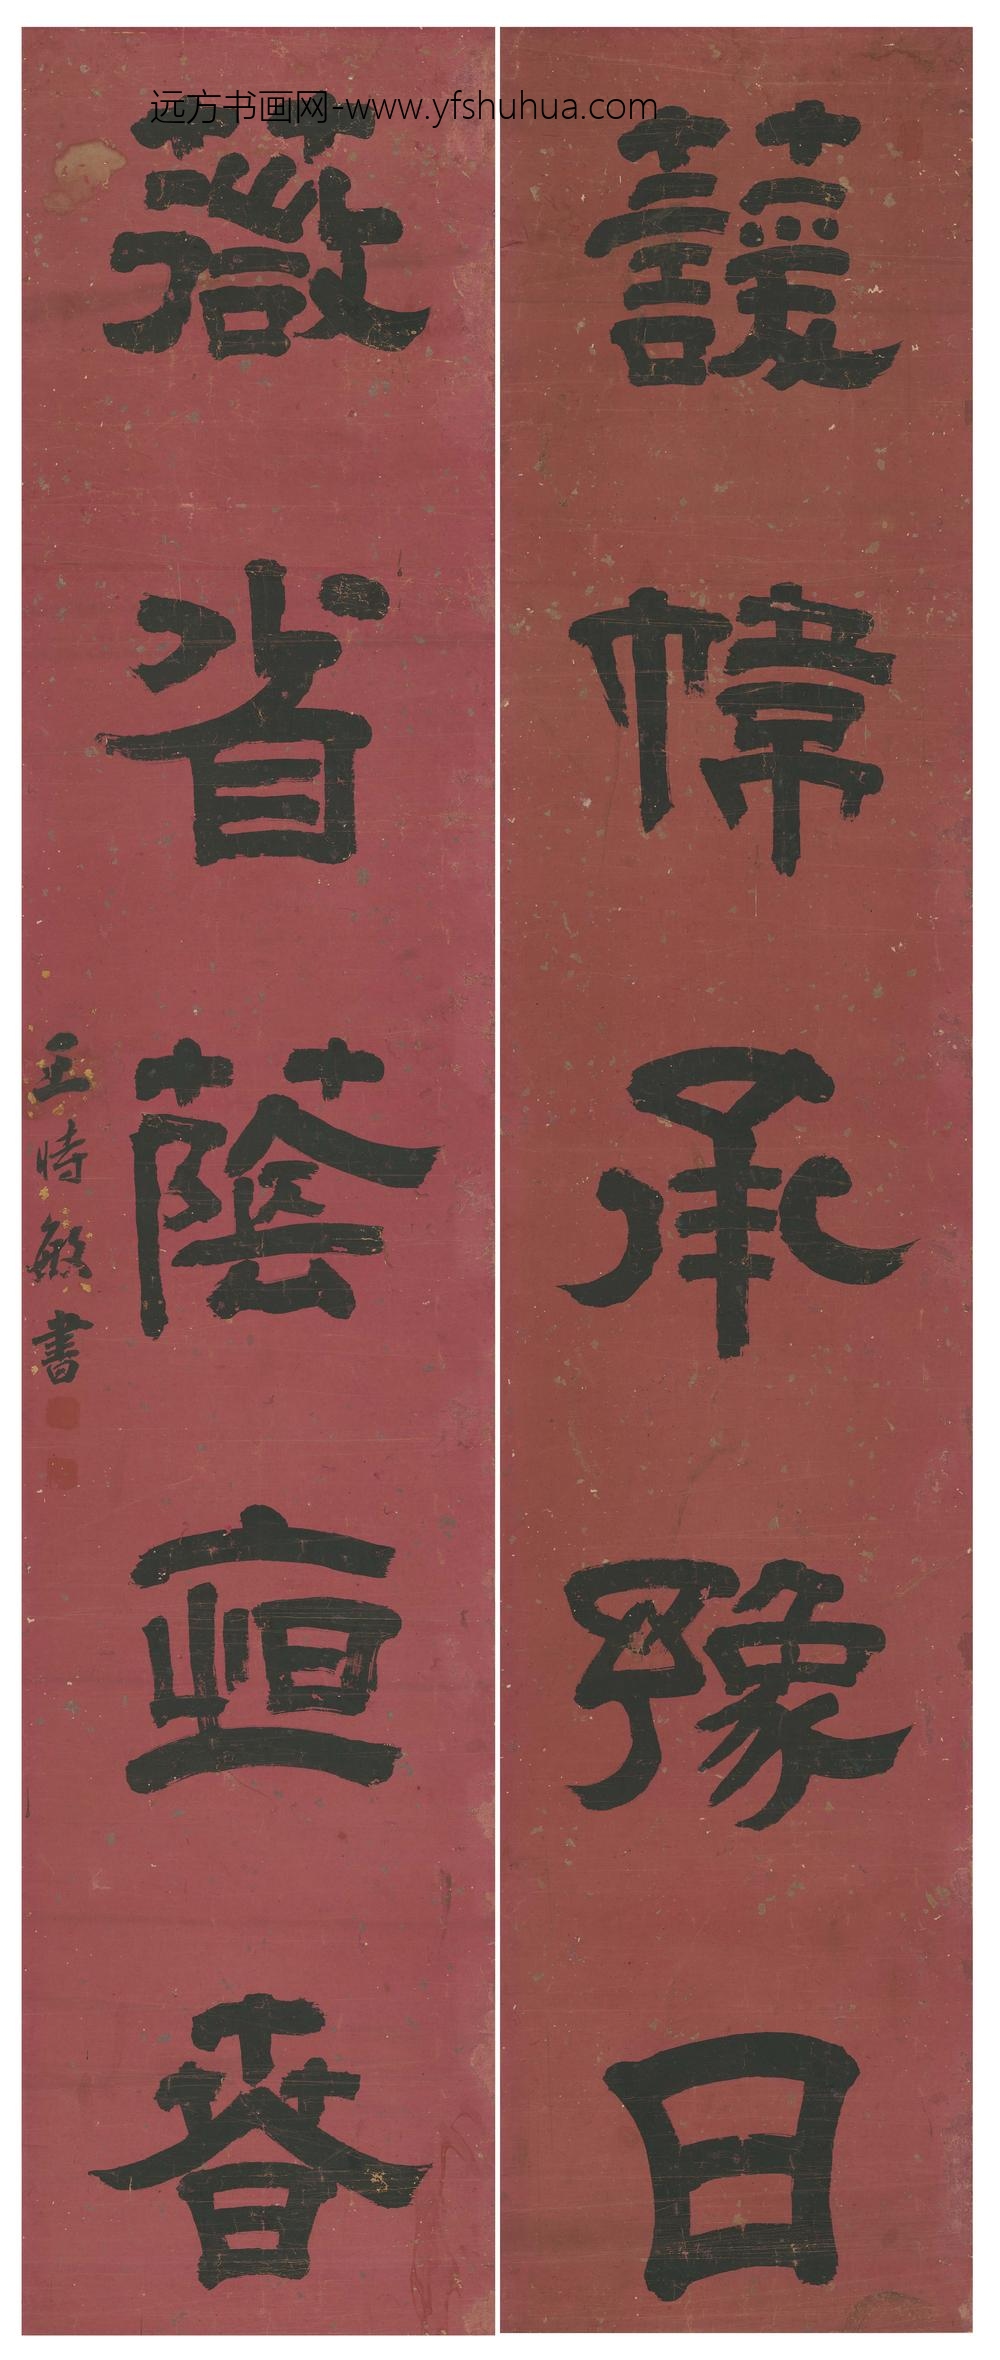 远方书画网-www.yfshuhua.com
蘐幃承豫日
薇省蔭恒香
王時敏書